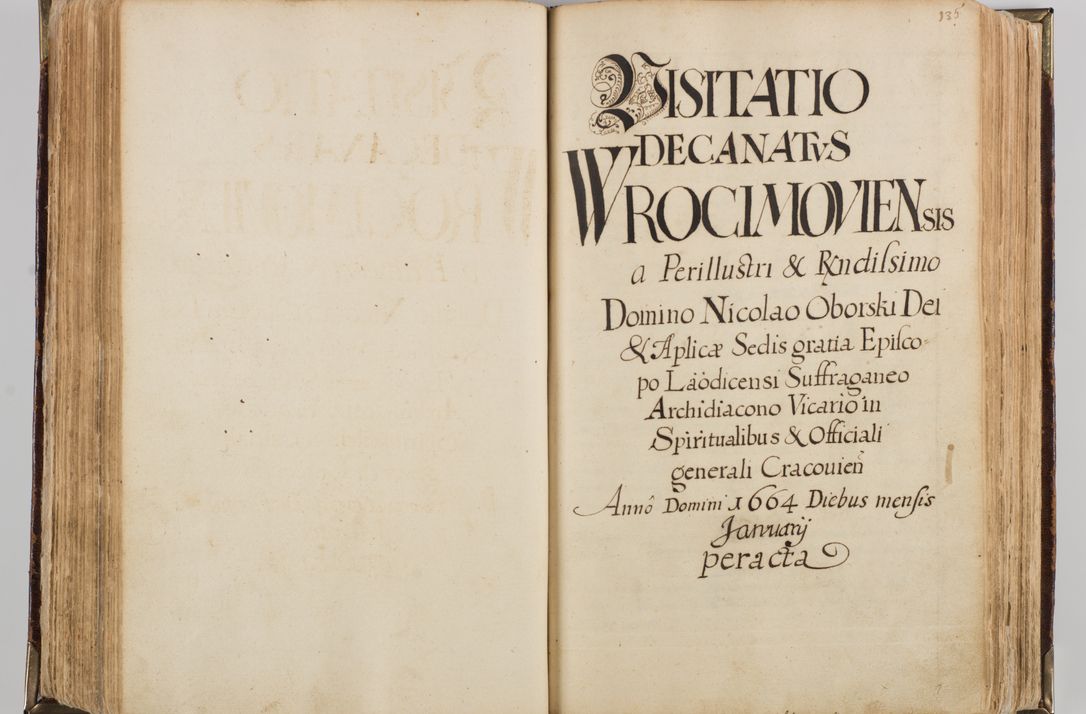 135
VISITATIO
DECANATVS
WROCIMOVIENSIS
a Perillustri & Rñdiſsimo
Domino Nicolao Oborski Dei
& Aplicæ Sedis gratia Epiſco-
po Läödicensi Suffraganeo
Archidiacono Vicario in
Spiritualibus & Officiali
generali Cracouień
Annô Domini 1664 Diebus menſis
Januarij
peracta